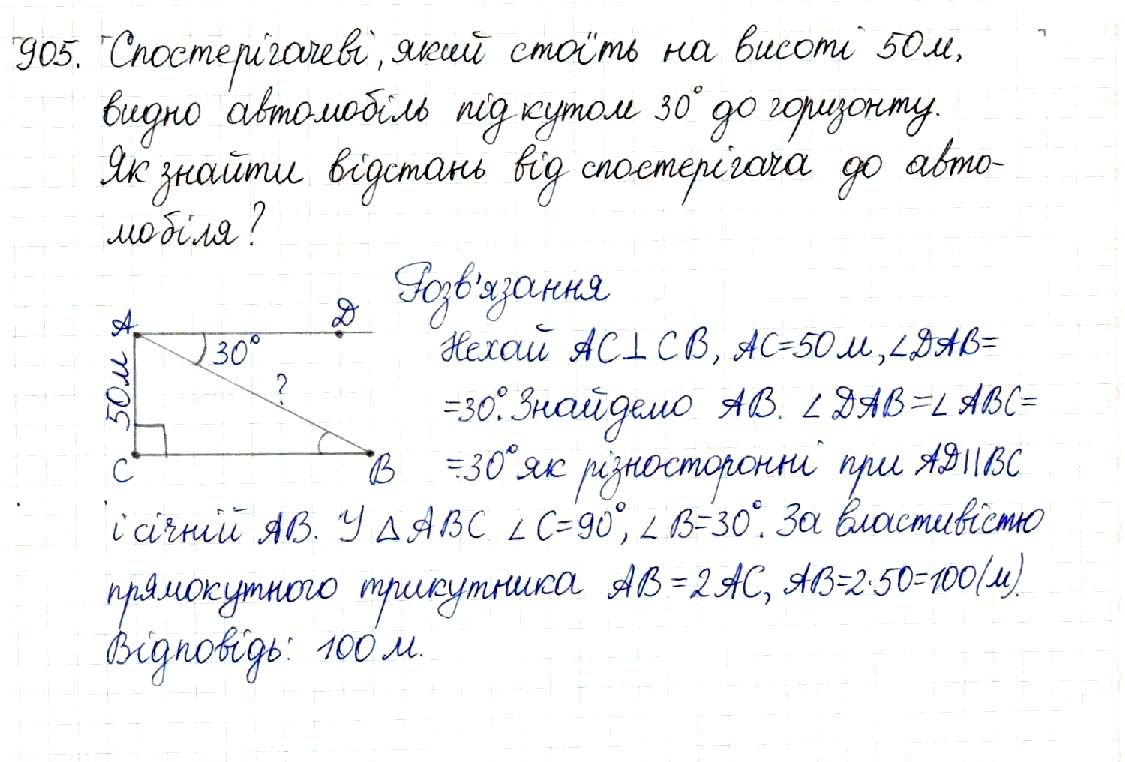 905. Спостерігачеві, який стоїть на висоті 50м,
видно автомобіль під кутом 30° до горизонту.
Як знайти відстань від спостерігача до авто-
мобіля?
Розв'язання
A
D
30°
50м
?
C
B
Нехай AC⊥CB, AC=50м, ∠DAB=
=30°. Знайдемо AB. ∠DAB=∠ABC=
=30° як різносторонні при AD||BC
і січній AB. У △ABC ∠C=90°, ∠B=30°. За властивістю
прямокутного трикутника AB=2AC, AB=2·50=100(м).
Відповідь: 100м.